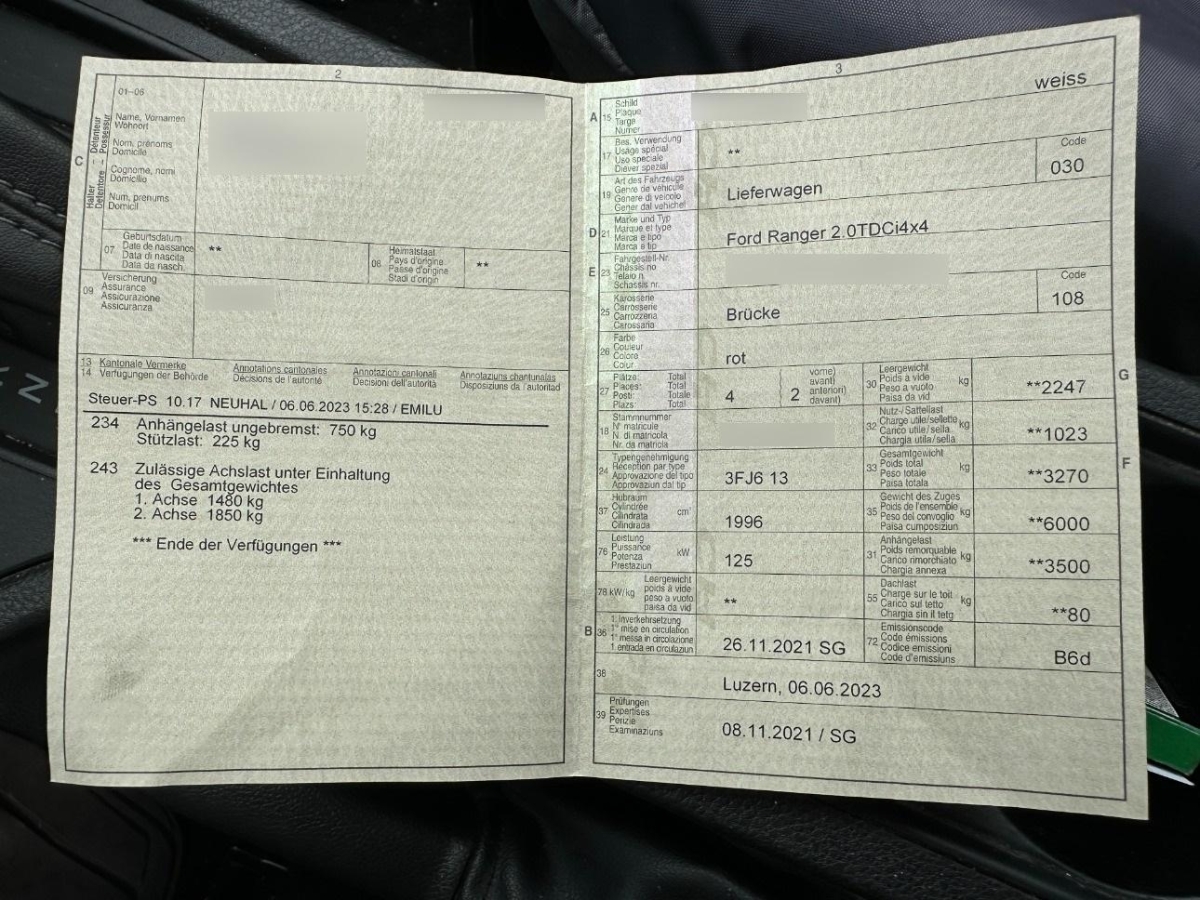 2
01-05
Halter - Détenteur
Detentore - Possessur
C
Name, Vornamen
Wohnort
Nom, prénoms
Domicile
Cognome, nomi
Domicilio
Num, prenums
Domicil
07
Geburtsdatum
Date de naissance
Data di nascita
Data da nasch.
**
08
Heimatstaat
Pays d'origine
Passe d'origine
Stadi d'origin
**
09
Versicherung
Assurance
Assicurazione
Assicuranza
13 Kantonale Vermerke
14 Verfügungen der Behörde
Annotations cantonales
Décisions de l'autorité
Annotazioni cantonali
Decisioni dell'autorità
Annotaziuns chantunalas
Disposiziuns da l'autoritad
Steuer-PS 10.17 NEUHAL / 06.06.2023 15:28 / EMILU
234 Anhängelast ungebremst: 750 kg
Stützlast: 225 kg
243 Zulässige Achslast unter Einhaltung
des Gesamtgewichtes
1. Achse 1480 kg
2. Achse 1850 kg
*** Ende der Verfügungen ***
3
A 15
Schild
Plaque
Targa
Numer
weiss
17
Bes. Verwendung
Usage spécial
Uso speciale
Diever spezial
**
19
Art des Fahrzeugs
Genre de véhicule
Genere di veicolo
Gener dal vehichel
Lieferwagen
Code
030
D 21
Marke und Typ
Marque et type
Marca e tipo
Marca e tip
Ford Ranger 2.0TDCi4x4
E 23
Fahrgestell-Nr.
Châssis no
Telaio n.
Schassis nr.
25
Karosserie
Carrosserie
Carrozzeria
Carossaria
Brücke
Code
108
26
Farbe
Couleur
Colore
Colur
rot
27
Plätze: Total
Places: Total
Posti: Totale
Plazs: Total
4
2
vorne)
avant)
anteriori)
davant)
30
Leergewicht
Poids à vide
Peso a vuoto
Paisa da vid
kg
**2247
G
18
Stammnummer
N° matricule
N. di matricola
Nr. da matricla
32
Nutz-/Sattellast
Charge utile/sellette
Carico utile/sella
Chargia utila/sella
kg
**1023
24
Typengenehmigung
Réception par type
Approvazione del tipo
Approvaziun dal tip
3FJ6 13
33
Gesamtgewicht
Poids total
Peso totale
Paisa totala
kg
**3270
F
37
Hubraum
Cylindrée
Cilindrata
Cilindrada
cm³
1996
35
Gewicht des Zuges
Poids de l'ensemble
Peso del convoglio
Paisa cumposiziun
kg
**6000
76
Leistung
Puissance
Potenza
Prestaziun
kW
125
31
Anhängelast
Poids remorquable
Carico rimorchiato
Chargia annexa
kg
**3500
78 kW/kg
Leergewicht
poids à vide
peso a vuoto
paisa da vid
**
55
Dachlast
Charge sur le toit
Carico sul tetto
Chargia sin il tetg
kg
**80
B 36
1. Inverkehrsetzung
1re mise en circulation
1a messa in circolazione
1. entrada en circulaziun
26.11.2021 SG
72
Emissionscode
Code émissions
Codice emissioni
Code d'emissiuns
B6d
38
Luzern, 06.06.2023
39
Prüfungen
Expertises
Perizie
Examinaziuns
08.11.2021 / SG